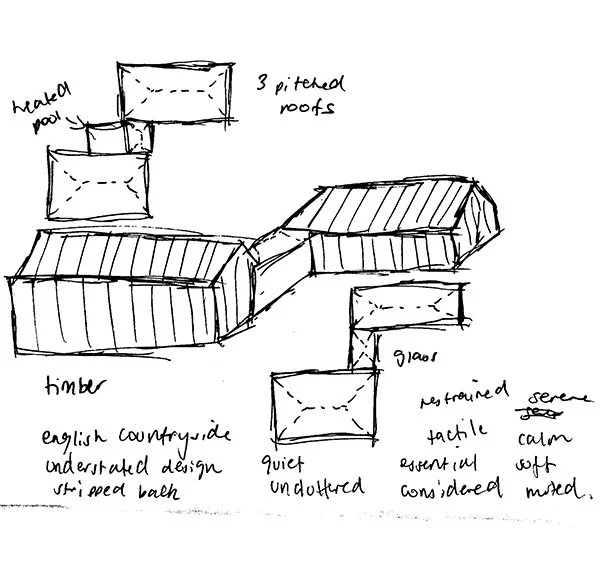 heated
pool
3 pitched
roofs
glass
timber
english countryside
understated design
stripped back
quiet
uncluttered
restrained
tactile
essential
considered
serene
calm
soft
muted.